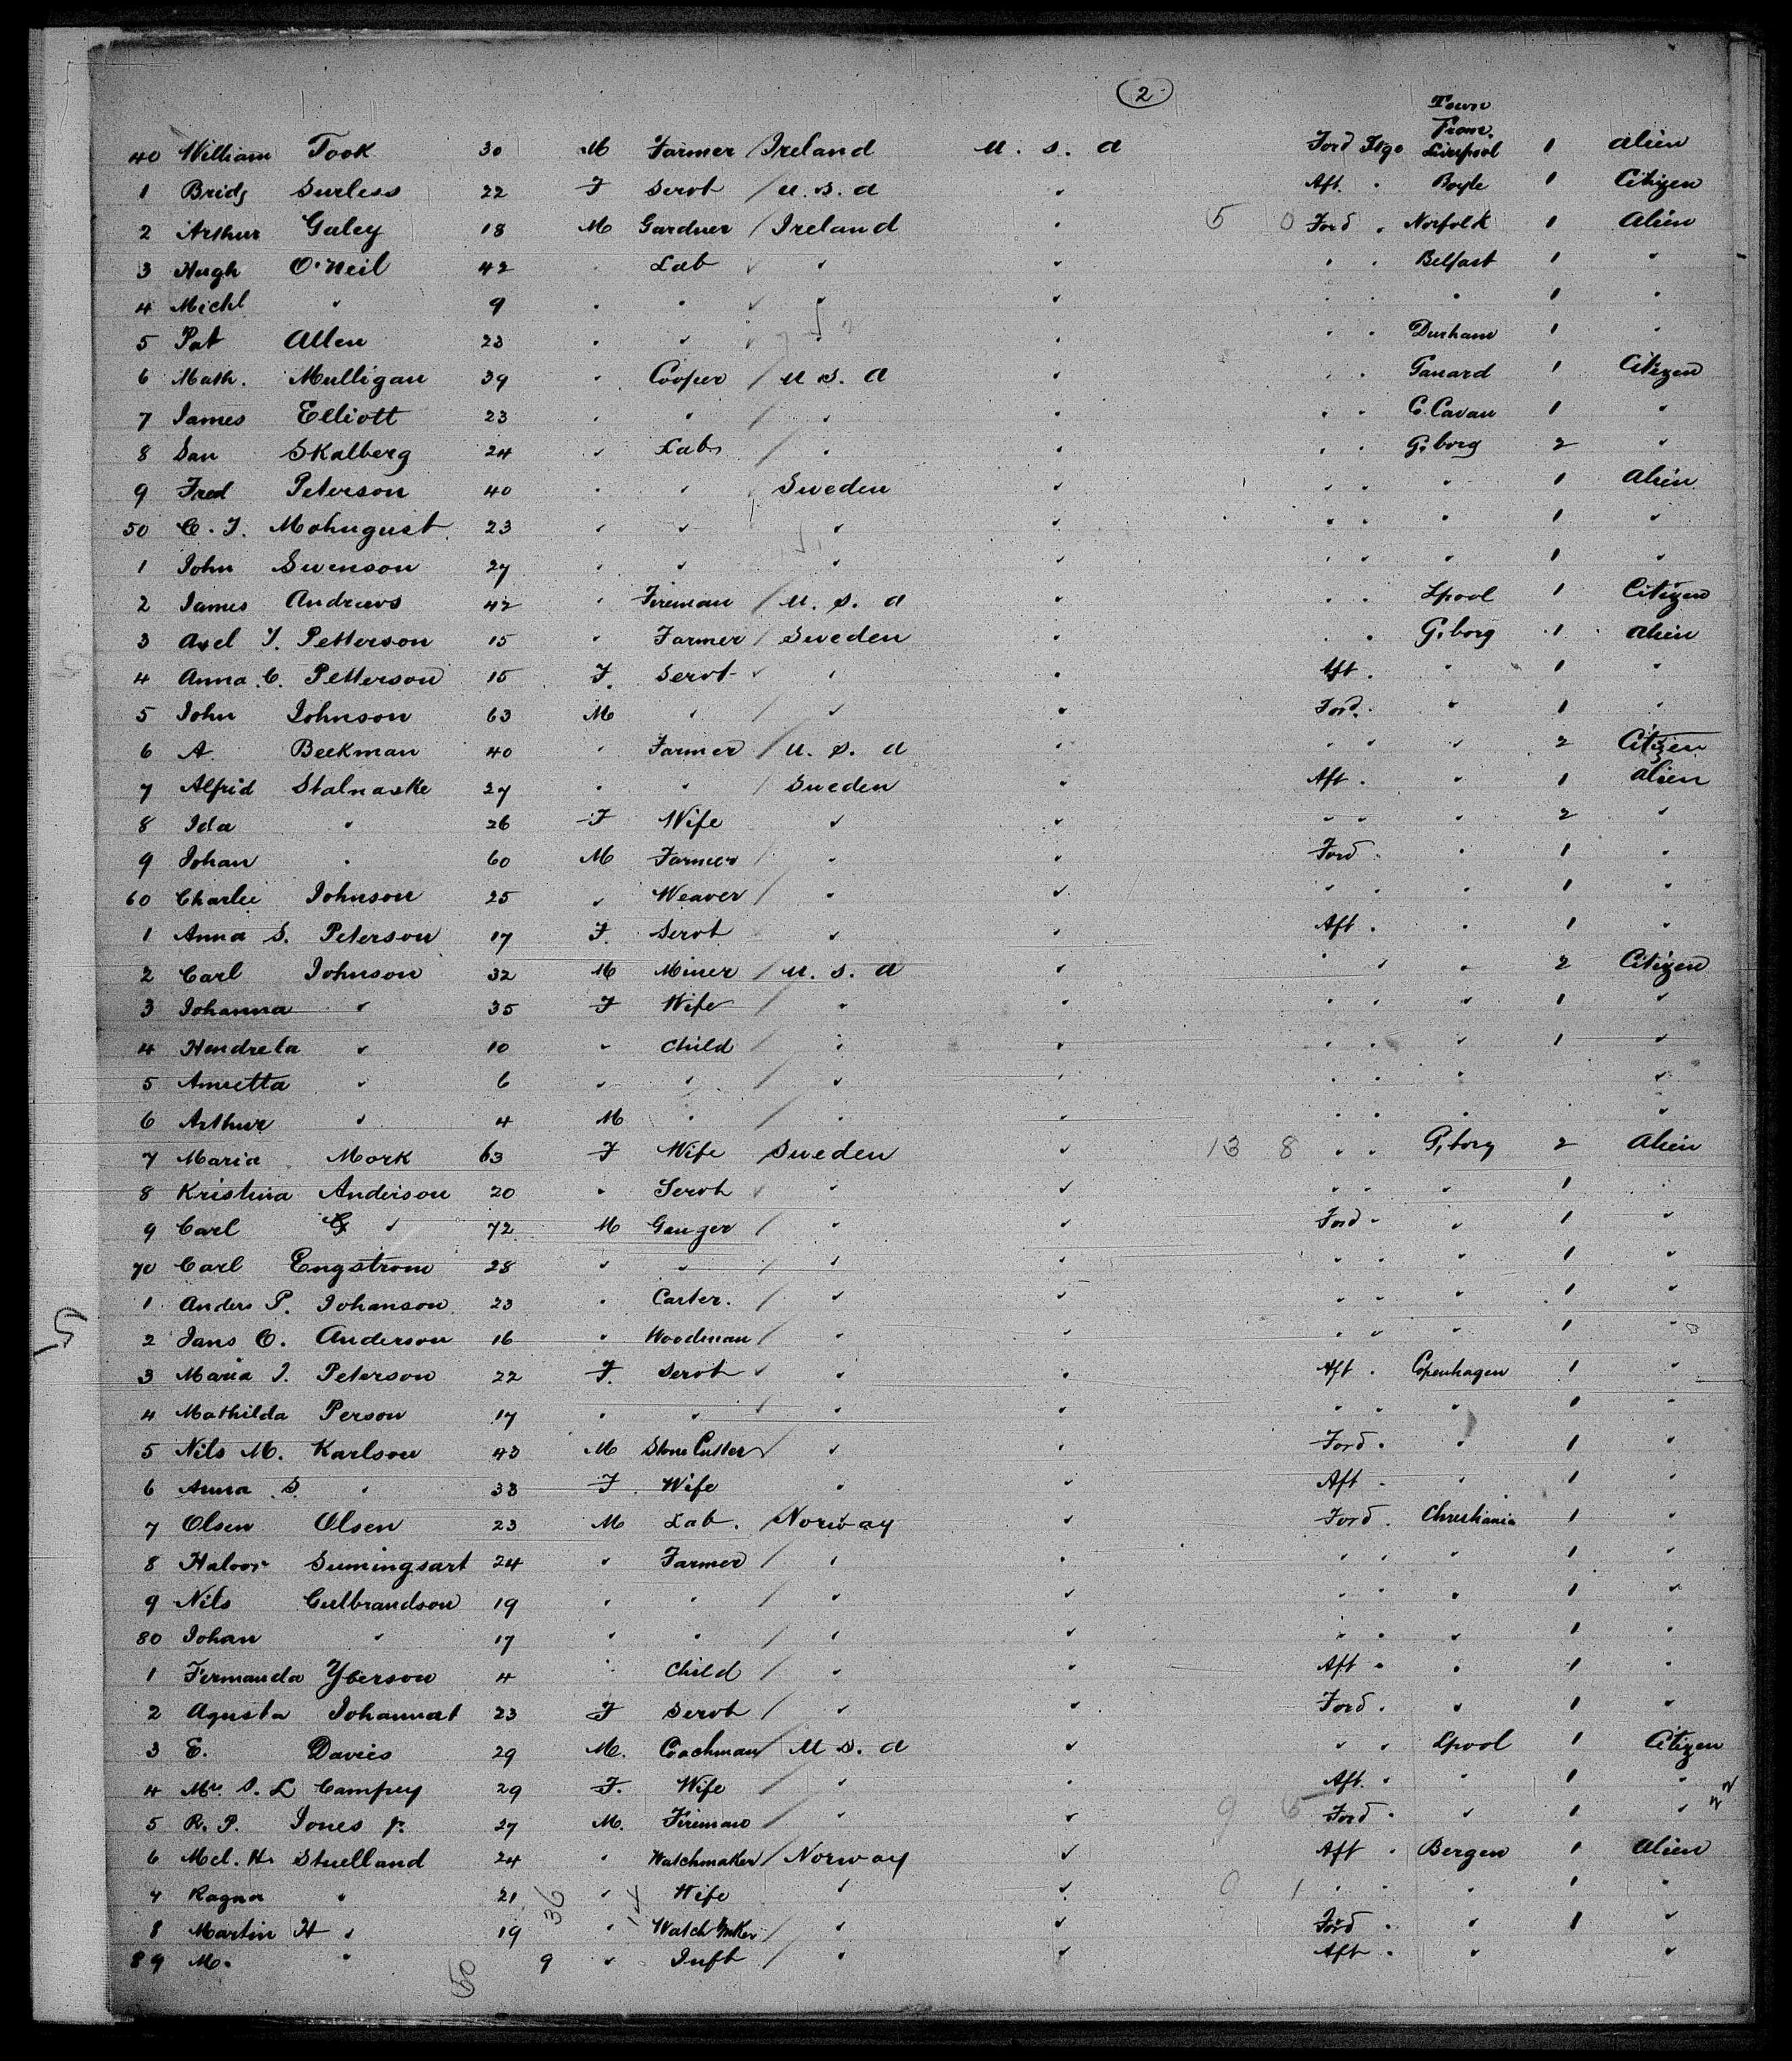 2
Town
From
40 William Took 30 M Farmer / Ireland U. S. A Ford Stge Liverpool 1 Alien
1 Bridg Surless 22 F Servt / U. S. A " Aft. " Boyle 1 Citizen
2 Arthur Galey 18 M Gardner / Ireland " 5 0 Ford " Norfolk 1 Alien
3 Hugh O'Neil 42 " Lab " " " " Belfast 1 "
4 Michl " 9 " " " " " " " 1 "
5 Pat Allen 23 " " " " " " Durham 1 "
6 Math. Mulligan 39 " Cooper / U. S. A " " " Ganard 1 Citizen
7 James Elliott 23 " " / " " " " C. Cavan 1 "
8 San Skalberg 24 " Lab / " " " " G.borg 2 "
9 Fred Peterson 40 " " / Sweden " " " " 1 Alien
50 C. J. Mohngust 23 " " " " " " " 1 "
1 John Swenson 27 " " " " " " " 1 "
2 James Andrews 42 " Fireman / U. S. A " " " Lpool 1 Citizen
3 Axel J. Petterson 15 " Farmer / Sweden " " " G.borg 1 Alien
4 Anna C. Petterson 15 F. Servt " " Aft. " 1 "
5 John Johnson 63 M " / " " Ford. " 1 "
6 A. Beekman 40 " Farmer / U. S. A " " " " 2 Citizen
7 Alfrid Stalnaske 27 " " / Sweden " Aft. " 1 Alien
8 Ida " 26 F Wife " " " " " 2 "
9 Johan " 60 M Farmer / " " Ford " " 1 "
60 Charlie Johnson 25 " Weaver / " " " " " 1 "
1 Anna S. Peterson 17 F. Servt " " Aft. " 1 "
2 Carl Johnson 32 M Miner / U. S. A " " " " 2 Citizen
3 Johanna " 35 F Wife / " " " " " 1 "
4 Hendreta " 10 " Child / " " " " " 1 "
5 Amretta " 6 " " / " " " " " "
6 Arthur " 4 M " / " " " " " "
7 Maria Mork 63 F Wife Sweden " 13 8 " " G.borg 2 Alien
8 Kristina Anderson 20 " Servt " " " " " 1 "
9 Carl G " 72 M Ganger / " " Ford " " 1 "
70 Carl Engstrom 28 " " / " " " " " 1 "
1 Anders P. Johanson 23 " Carter. / " " " " " 1 "
2 Jans O. Anderson 16 " Woodman / " " " " " 1 "
3 Maria J. Peterson 22 F. Servt " " Aft " Copenhagen 1 "
4 Mathilda Person 17 " " / " " " " " 1 "
5 Nils M. Karlson 43 M Stone Cutter " " Ford " " 1 "
6 Anna S. " 38 F. Wife " " Aft " " 1 "
7 Olsen Olsen 23 M Lab. / Norway " Ford " Christiania 1 "
8 Halvor Sumingsart 24 " Farmer / " " " " " 1 "
9 Nils Gulbrandson 19 " " / " " " " " 1 "
80 Johan " 17 " " / " " " " " 1 "
1 Fermanda Yberson 4 " Child / " " Aft " " 1 "
2 Agusta Johannat 23 F Servt / " " Ford " " 1 "
3 E. Davies 29 M. Coachman / U S. A " " " Lpool 1 Citizen
4 Mrs. S. L Campey 29 F. Wife / " " Aft. " " 1 "
5 R. P. Jones Jr. 27 M. Fireman / " " 9 6 Ford " " 1 "
6 Mcl. H. Stuelland 24 " Watchmaker / Norway " Aft " Bergen 1 Alien
7 Ragna " 21 " Wife " " 0 1 " " " 1 "
8 Martin H " 19 " Watch Mker / " " Ford " " 1 "
89 M. " 9 " Inft / " " Aft " " "
36
14
50